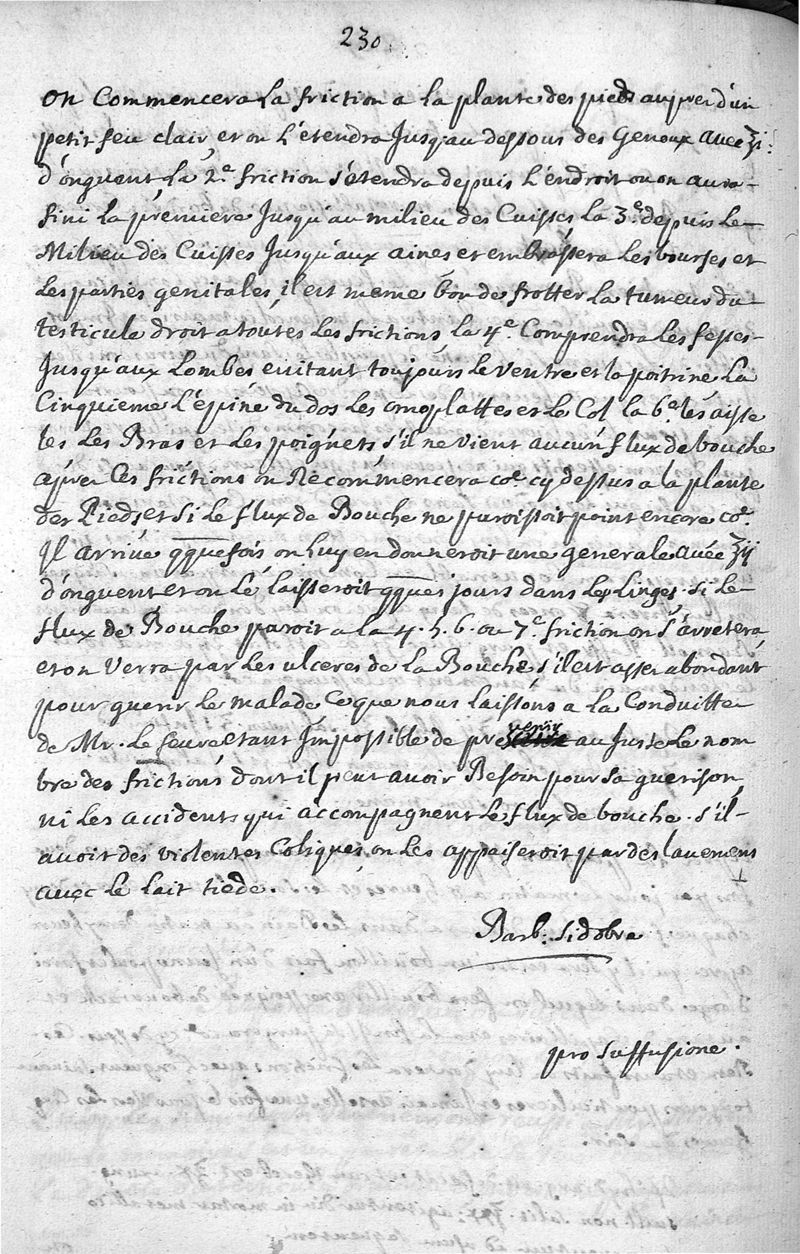 230
on Commencera la friction a la plante des pieds aupres d'un
petit feu clair, et on l'etendra Jusqu'au dessous des Genoux avec ʒi.
d'onguent, la 2.e friction s'etendra depuis l'endroit ou on aura
fini la premiere Jusqu'au milieu des Cuisses la 3.e depuis le
Milieu des Cuisses Jusqu'aux aines et embrassera les bourses et
les parties genitales, il est meme bon de frotter la tumeur du
testicule droit a toutes les frictions, la 4.e Comprendra les fesses
Jusqu'aux Lombes evitant toujours le ventre et la poitrine La
Cinquieme l'épine du dos les omoplattes et le Col la 6.e les aisse
les les Bras et les poignets s'il ne vient aucun flux de bouche
apres ces frictions on Recommencera co.e cy dessus a la plante
des Pieds et si le flux de Bouche ne paroissoit point encore co.e
Il arrive qquefois on luy en donneroit une generale avec ʒij
d'onguent et on le laisseroit qques jours dans les Linges. si le
flux de Bouche paroit a la 4. 5. 6. ou 7.e friction on s'arretera
et on verra par les ulceres de la Bouche, s'il est assez abondant
pour guerir le malade Ce que nous laissons a la Conduitte
de Mr. Le feure etant Impossible de prevenir au Juste le nom
bre des frictions dont il peut avoir Besoin pour sa guerison,
ni les accidents qui accompagnent le flux de bouche. s'il
avoit des violentes Coliques on les appaiseroit par des lavemens
avec le lait tiede.
Barb. Sidobre
pro suffusione.